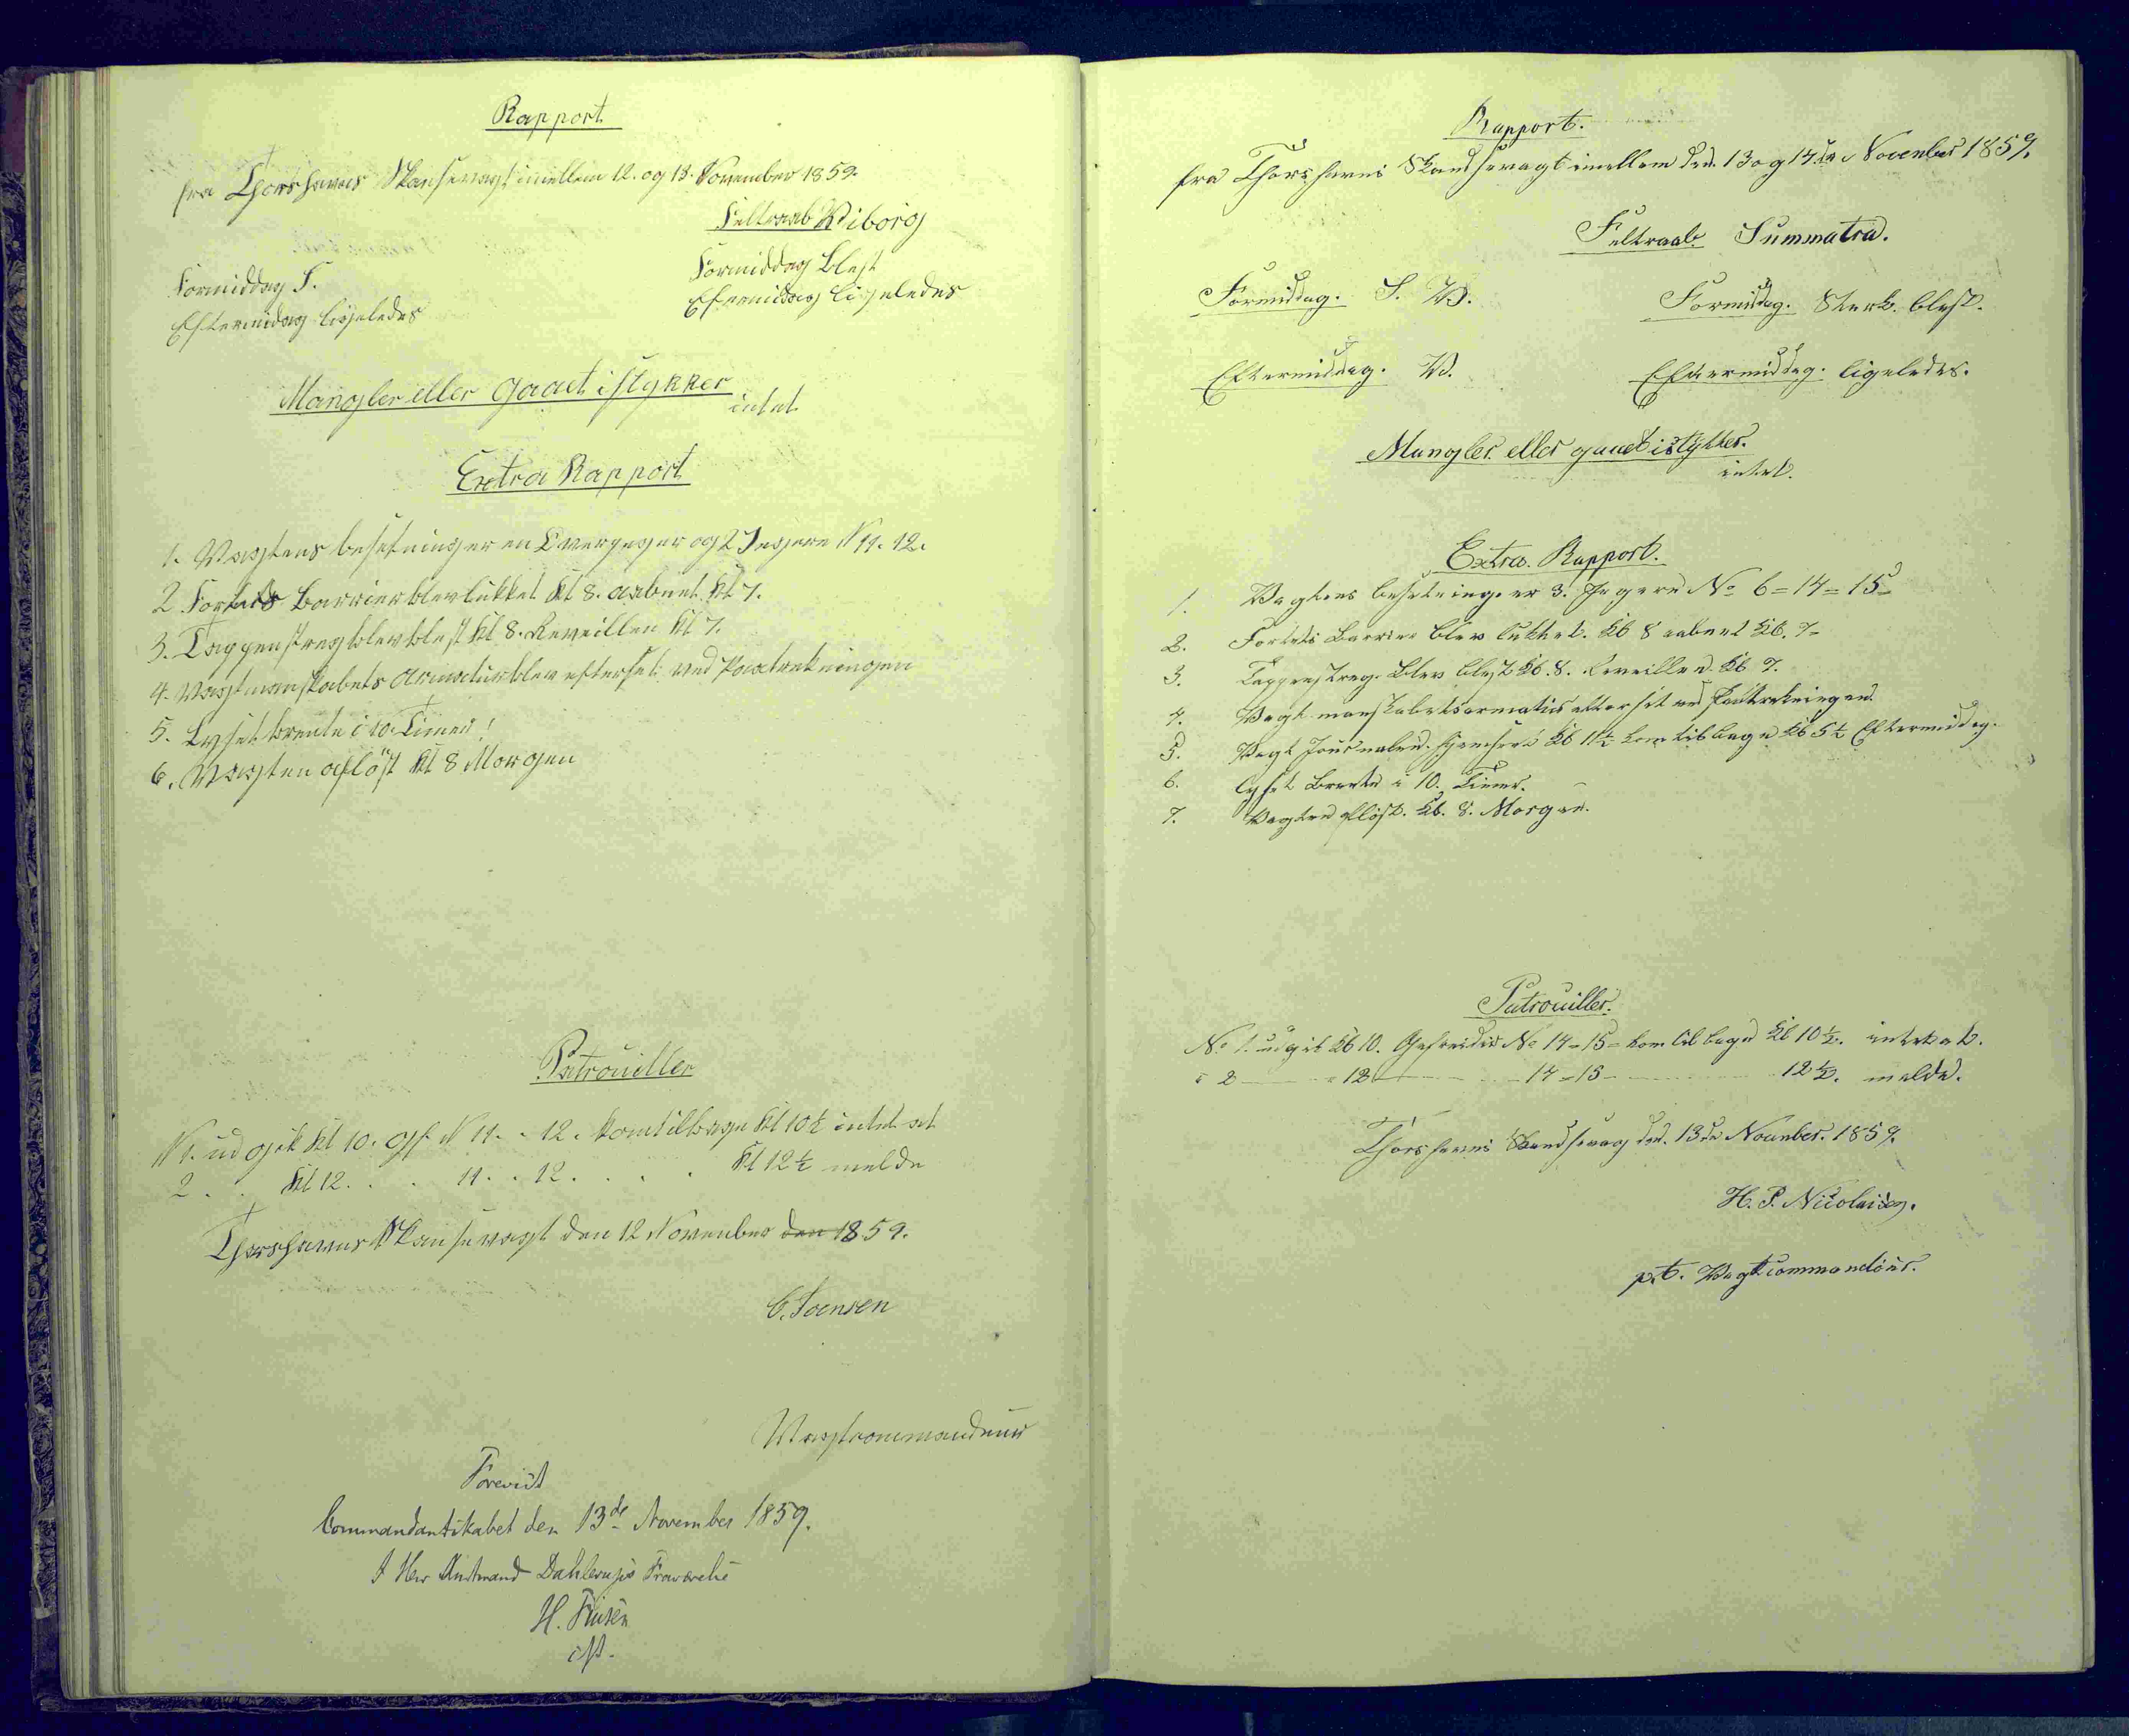 Rapport
fra Thorshavns Skansevagt imellem 12. og 13. November 1859.
Feltraab Wiborg
Formiddag S.
Formiddag Blest
Eftermidag ligeledes
Efermidag ligeledes
Mangler eller gaaet istykker
intet
Extra Rapport
1. Vagtens besetning er en Overjeger og 2 Jegere N 11. 12.
2 Fortets Barrier blev lukket Kl 8. aabnet Kl 7.
3. Tappenstreg blev blest Kl 8. Reveillen Kl 7.
4. Vagtmanskabets Armatur blev efterset ved Paatrekningen
5. Lyset brente i 10 Timer!
6. Vagten afløst Kl 8 Morgen
Patrouiller
N 1. ud gik Kl 10. Gf. N 11. . 12. kom tilbage Kl 10½ intet at
2 . . Kl 12. . . 11. . 12. . . . Kl 12½ melde
Thorshavns Skansevagt den 12 November den 1859.
C. Joensen
Vagtcommandeur
Forevist
Commandantskabet den 13de November 1859.
I Herr Amtmand Dahlerups Fraværelse
H. Finsen
cst.
Rapport.
fra Thorshavns Skandsevagt imellem den 13 og 14de November 1859.
Feltraab Summatra.
Formiddag. S. V.
Formidag. Sterk. blest.
Eftermiddag. V.
Eftermiddag. ligeledes.
Mangler eller gaaet istykker.
intet.
Extra. Rapport.
1. Vagtens besetning. er 3. Jegere No 6 = 14 = 15 =
2. Fortets Barrier blev lukket. Kl 8 aabnet Kl. 7 -
3. Tappenstreg. blev blest Kl. 8. Reveillen. Kl 7.
4. Vagt manskabets armatur efterset ved Paatrekningen.
5. Vagt Journalen. Kl 11½ kom tilbage Kl 5½ Eftermiddag.
6. lyset brente i 10. Timer.
7. Vagten afløst. Kl. 8. Morgen.
Patrouiller.
No 1. udgik Kl 10. Gefreider No 14 = 15 = kom tilbage Kl 10½. intet at.
" 2 — " 12 — 14 = 15 — 12½. melde.
Thorshavns Skandsevag den 13de November. 1859.
H. P. Nicolaisen.
p.t. Vagtcommandeur.